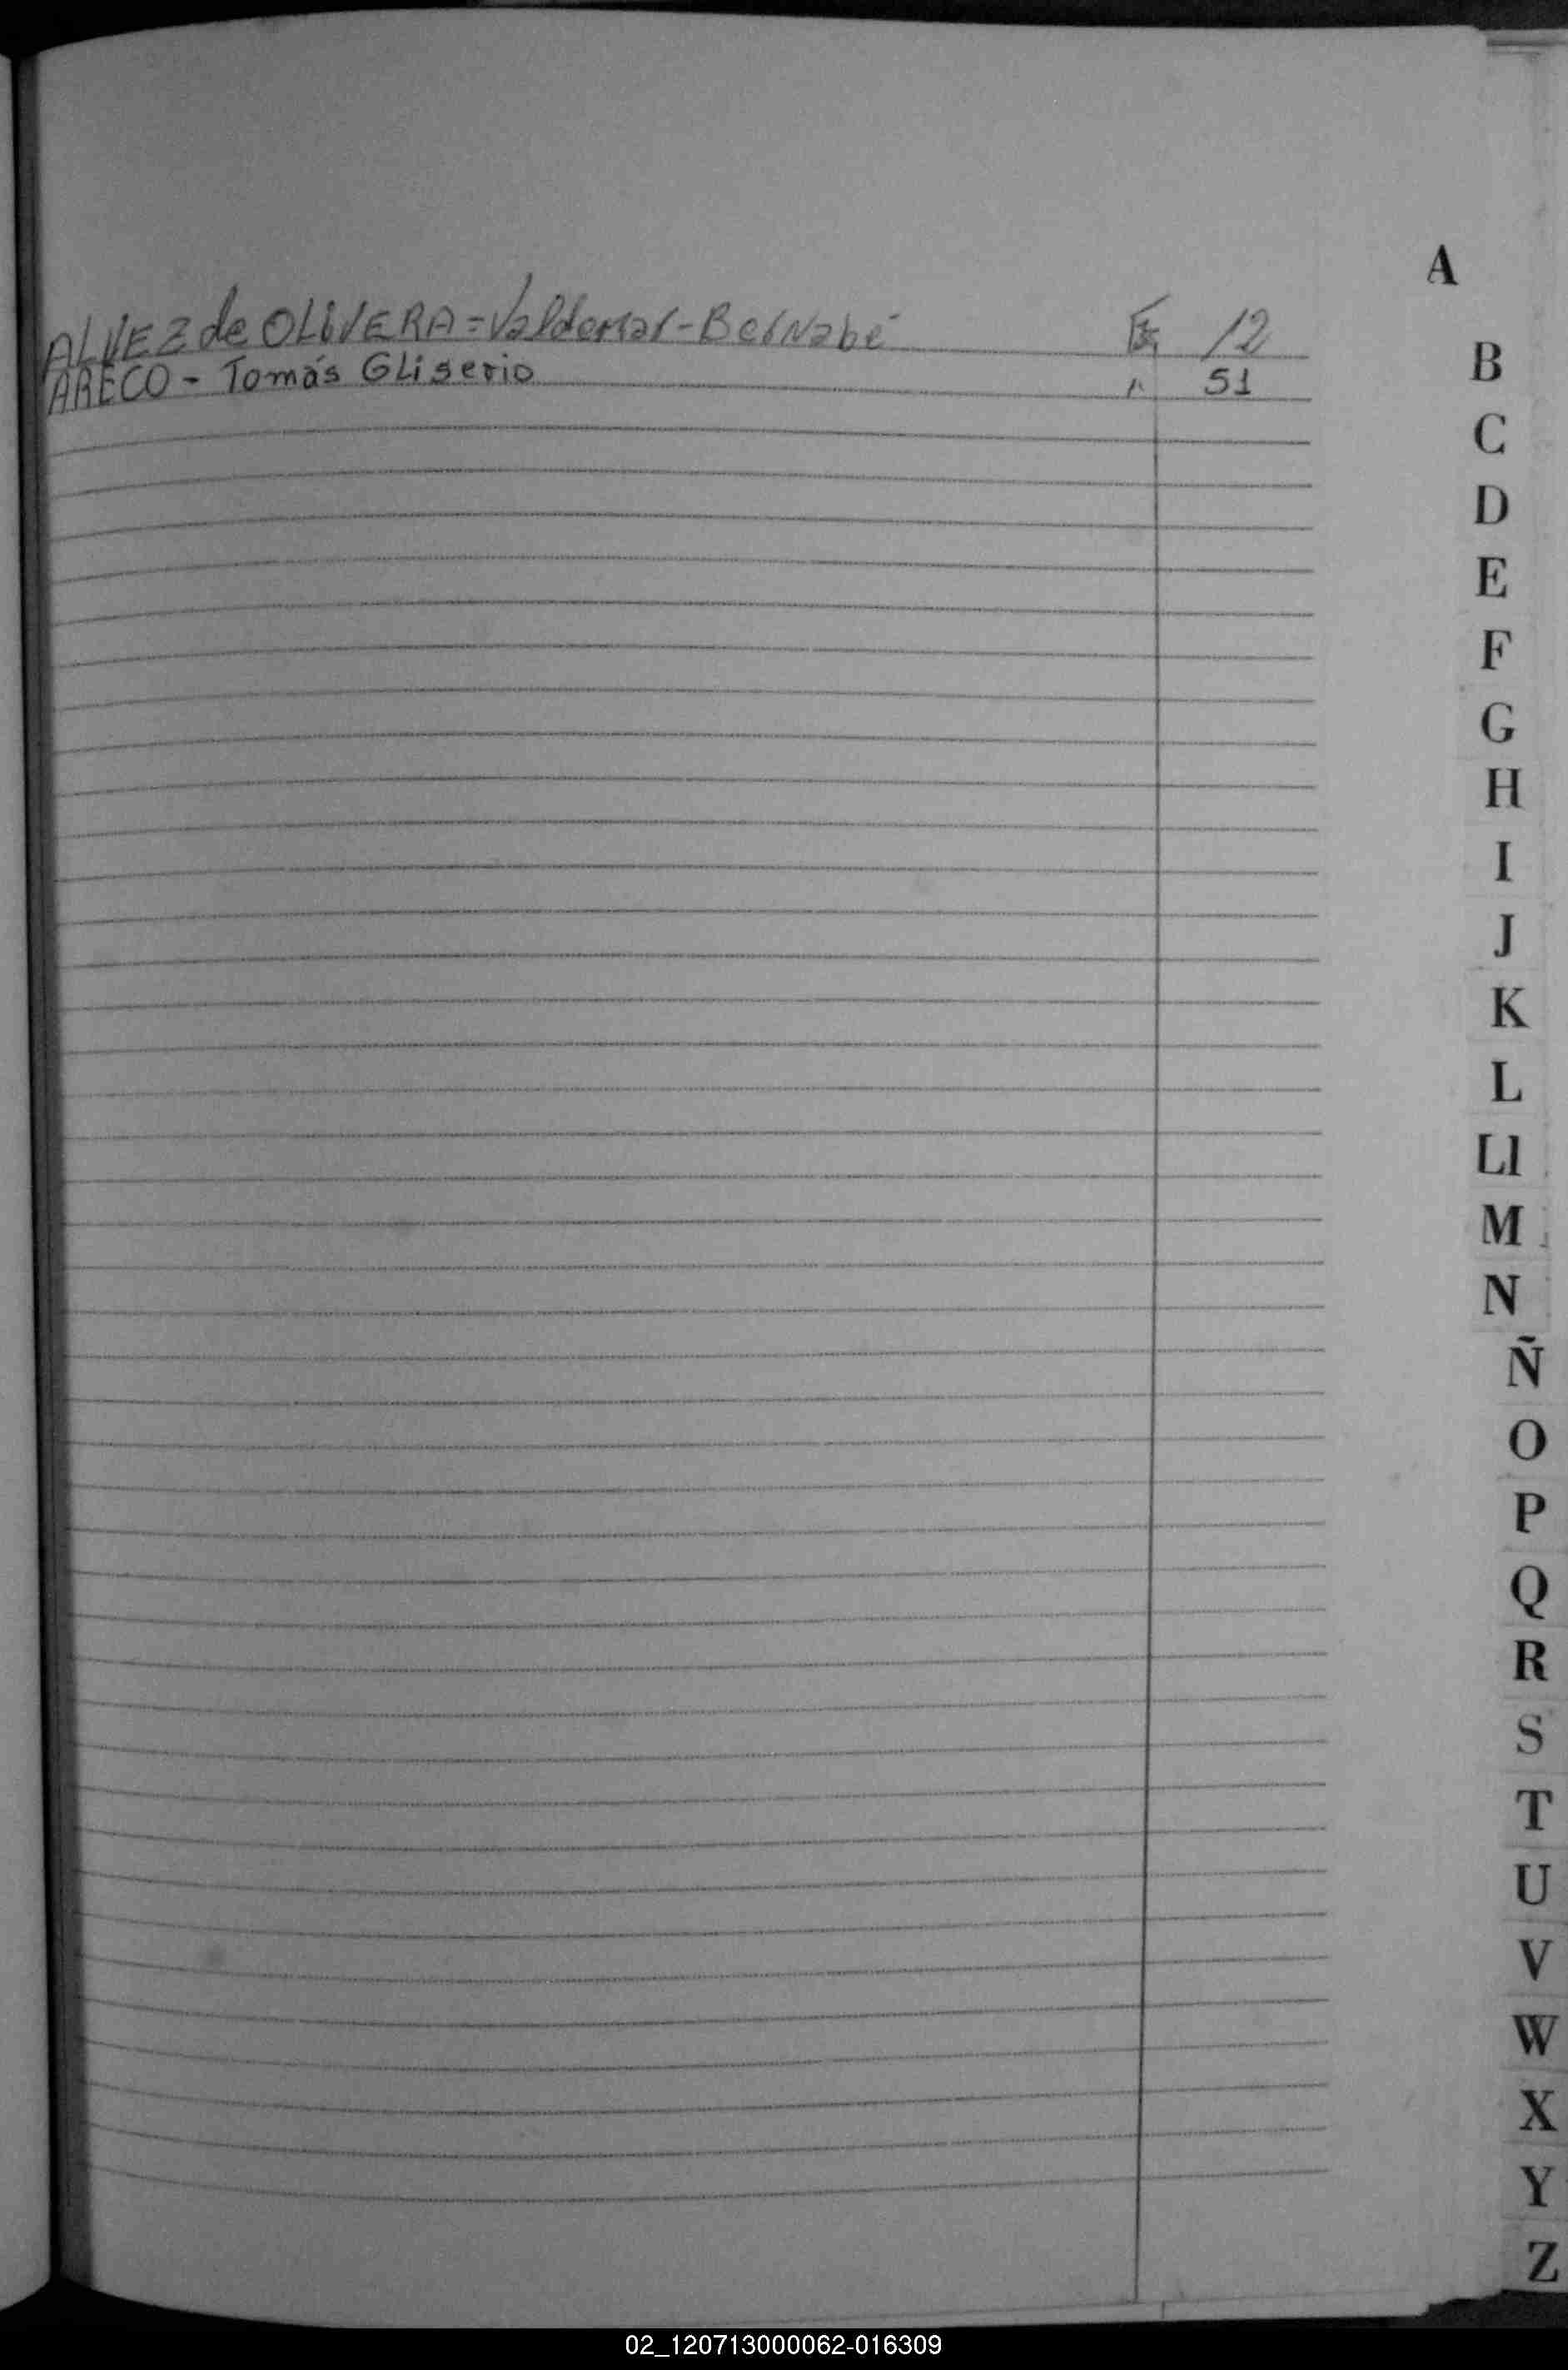 A
ALVEZ de OLIVERA = Valdemar - Bernabé 12
ARECO - Tomás Gliserio 51
B
C
D
E
F
G
H
I
J
K
L
Ll
M
N
Ñ
O
P
Q
R
S
T
U
V
W
X
Y
Z
02_120713000062-016309